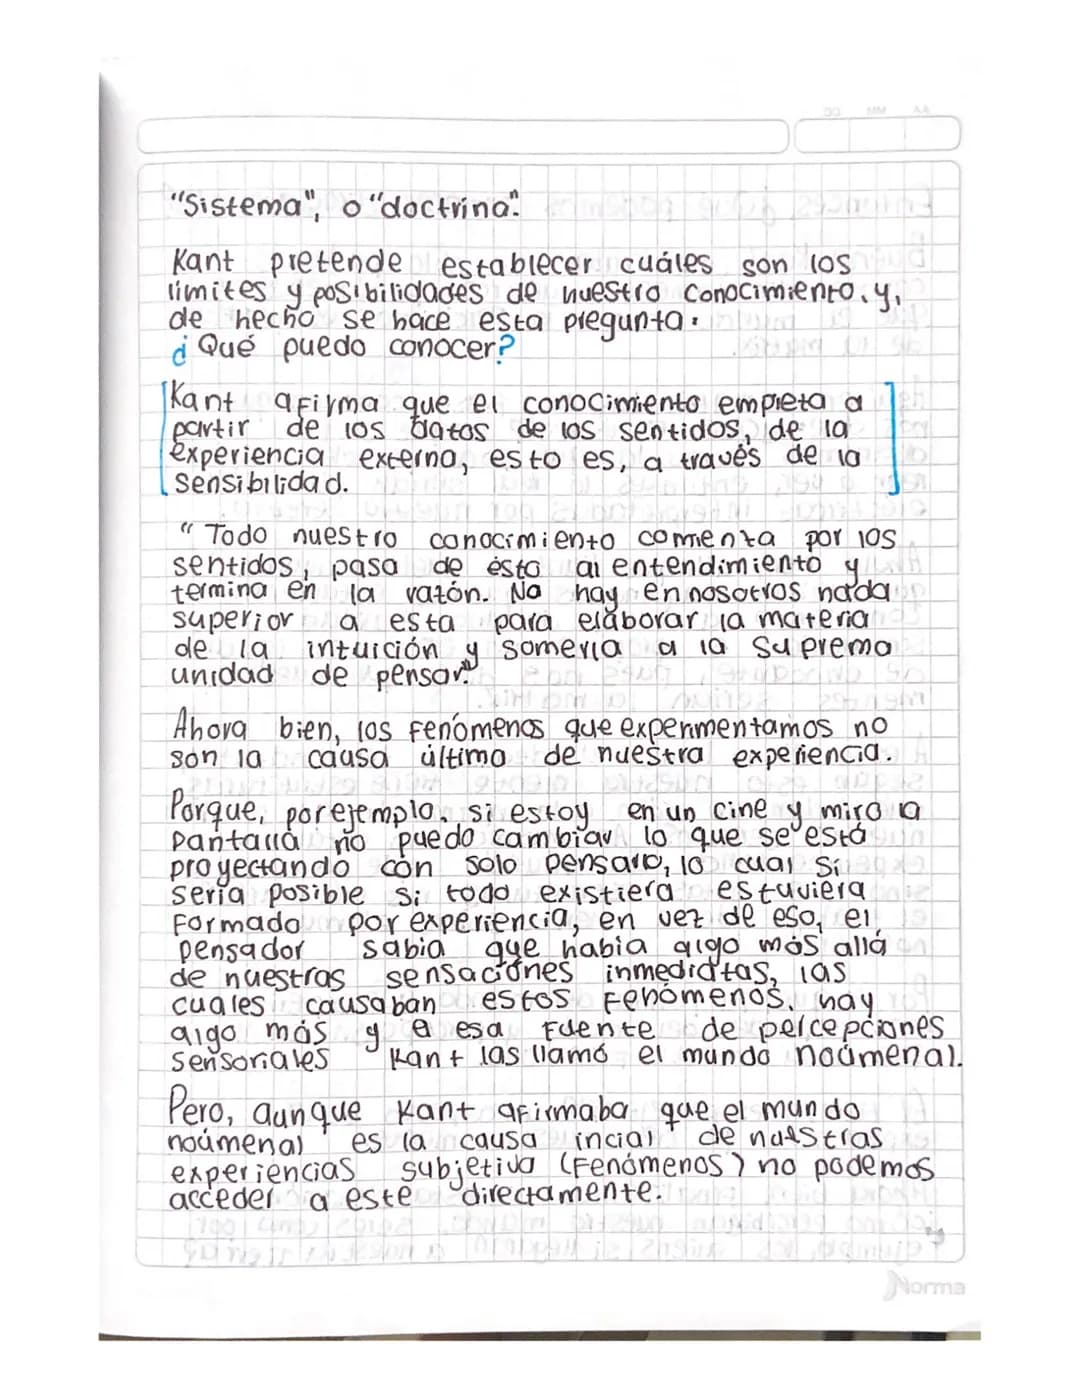 AA MM DD
"Sistema", o "doctrina".
Kant pretende establecer cuáles son los
límites y posibilidades de nuestro conocimiento, y,
de hecho se hace esta pregunta:
¿Qué puedo conocer?
Kant afirma que el conocimiento empieza a
partir de los datos de los sentidos, de la
experiencia externa, esto es, a través de la
sensibilidad.
"Todo nuestro conocimiento comienza por los
sentidos, pasa de ésta al entendimiento y
termina en la razón. No hay en nosotros nada
superior a esta para elaborar la materia
de la intuición y somerla a la suprema
unidad de pensar."
Ahora bien, los fenómenos que experimentamos no
son la causa última de nuestra experiencia.
Porque, por ejemplo, si estoy en un cine y miro la
pantalla no puedo cambiar lo que se está
proyectando con solo pensarlo, lo cual sí
sería posible si todo existiera estuviera
formado por experiencia, en vez de eso, el
pensador sabía que había algo más allá
de nuestras sensaciones inmediatas, las
cuales causaban estos fenómenos. hay
algo más y a esa fuente de percepciones
sensoriales Kant las llamó el mundo noúmenal.
Pero, aunque Kant afirmaba que el mundo
noúmenal es la causa incial de nuestras
experiencias subjetiva (fenómenos) no podemos
acceder a este directamente.
Norma